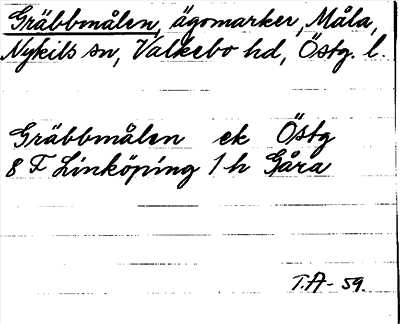 Gräbbmålen, ägomarker, Måla,
Nykils sn, Valkebo hd, Östg. l.
Gräbbmålen ek Östg
8 F Linköping 1 h Gåra
T.A - 59.